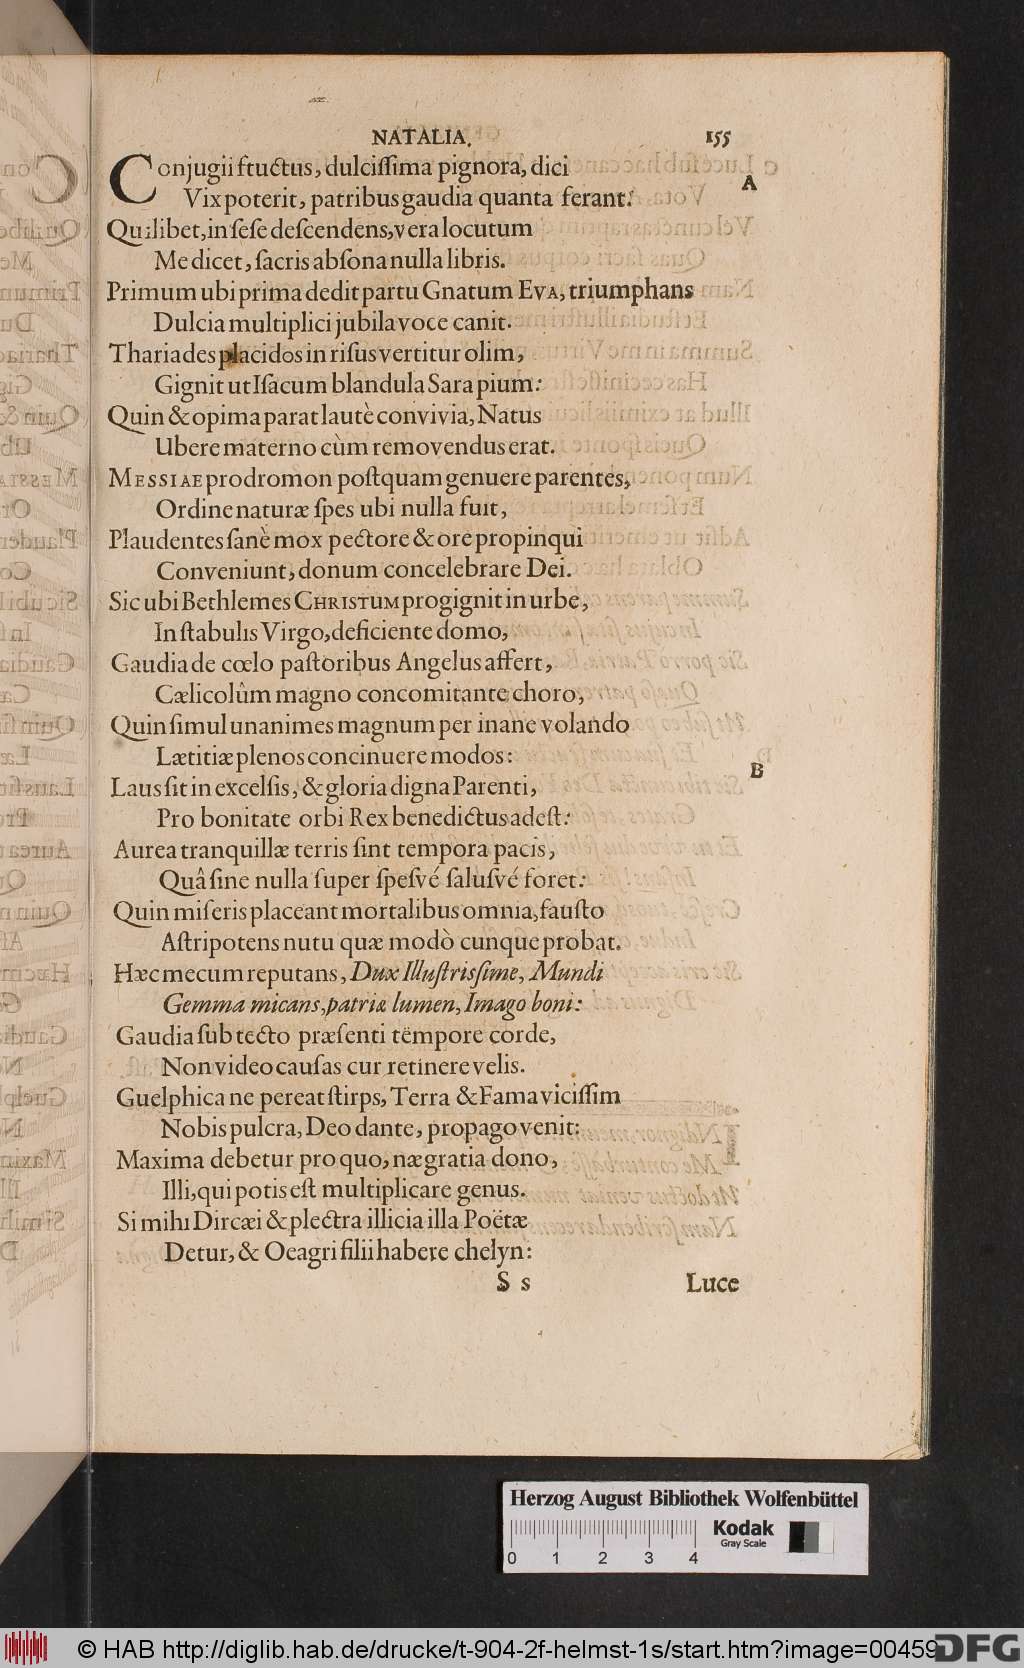 NATALIA. 155
Conjugii ftuctus, dulciſſima pignora, dici
A
Vix poterit, patribus gaudia quanta ferant:
Quilibet, in ſeſe deſcendens, vera locutum
Me dicet, ſacris abſona nulla libris.
Primum ubi prima dedit partu Gnatum EVA, triumphans
Dulcia multiplici jubila voce canit.
Thariades placidos in riſus vertitur olim,
Gignit ut Iſacum blandula Sara pium:
Quin & opima parat lautè convivia, Natus
Ubere materno cùm removendus erat.
MESSIAE prodromon poſtquam genuere parentes,
Ordine naturæ ſpes ubi nulla fuit,
Plaudentes ſanè mox pectore & ore propinqui
Conveniunt, donum concelebrare Dei.
Sic ubi Bethlemes CHRISTUM progignit in urbe,
In ſtabulis Virgo, deficiente domo,
Gaudia de cœlo paſtoribus Angelus affert,
Cælicolûm magno concomitante choro,
Quin ſimul unanimes magnum per inane volando
Lætitiæ plenos concinuere modos:
B
Laus ſit in excelſis, & gloria digna Parenti,
Pro bonitate orbi Rex benedictus adeſt:
Aurea tranquillæ terris ſint tempora pacis,
Quâ ſine nulla ſuper ſpeſvé ſaluſvé foret:
Quin miſeris placeant mortalibus omnia, fauſto
Aſtripotens nutu quæ modò cunque probat.
Hæc mecum reputans, Dux Illuſtrisſime, Mundi
Gemma micans, patriæ lumen, Imago boni:
Gaudia ſub tecto præſenti tempore corde,
Non video cauſas cur retinere velis.
Guelphica ne pereat ſtirps, Terra & Fama viciſſim
Nobis pulcra, Deo dante, propago venit:
Maxima debetur pro quo, næ gratia dono,
Illi, qui potis eſt multiplicare genus.
Si mihi Dircæi & plectra illicia illa Poëtæ
Detur, & Oeagri filii habere chelyn:
S s Luce
Herzog August Bibliothek Wolfenbüttel
Kodak
Gray Scale
0 1 2 3 4
© HAB http://diglib.hab.de/drucke/t-904-2f-helmst-1s/start.htm?image=00459
DFG